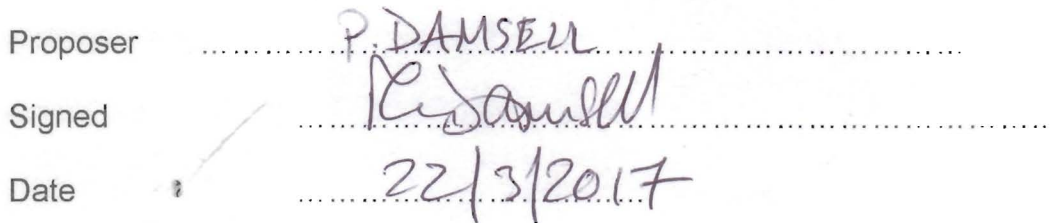 Proposer P. DAMSELL
Signed
Date 22/3/2017